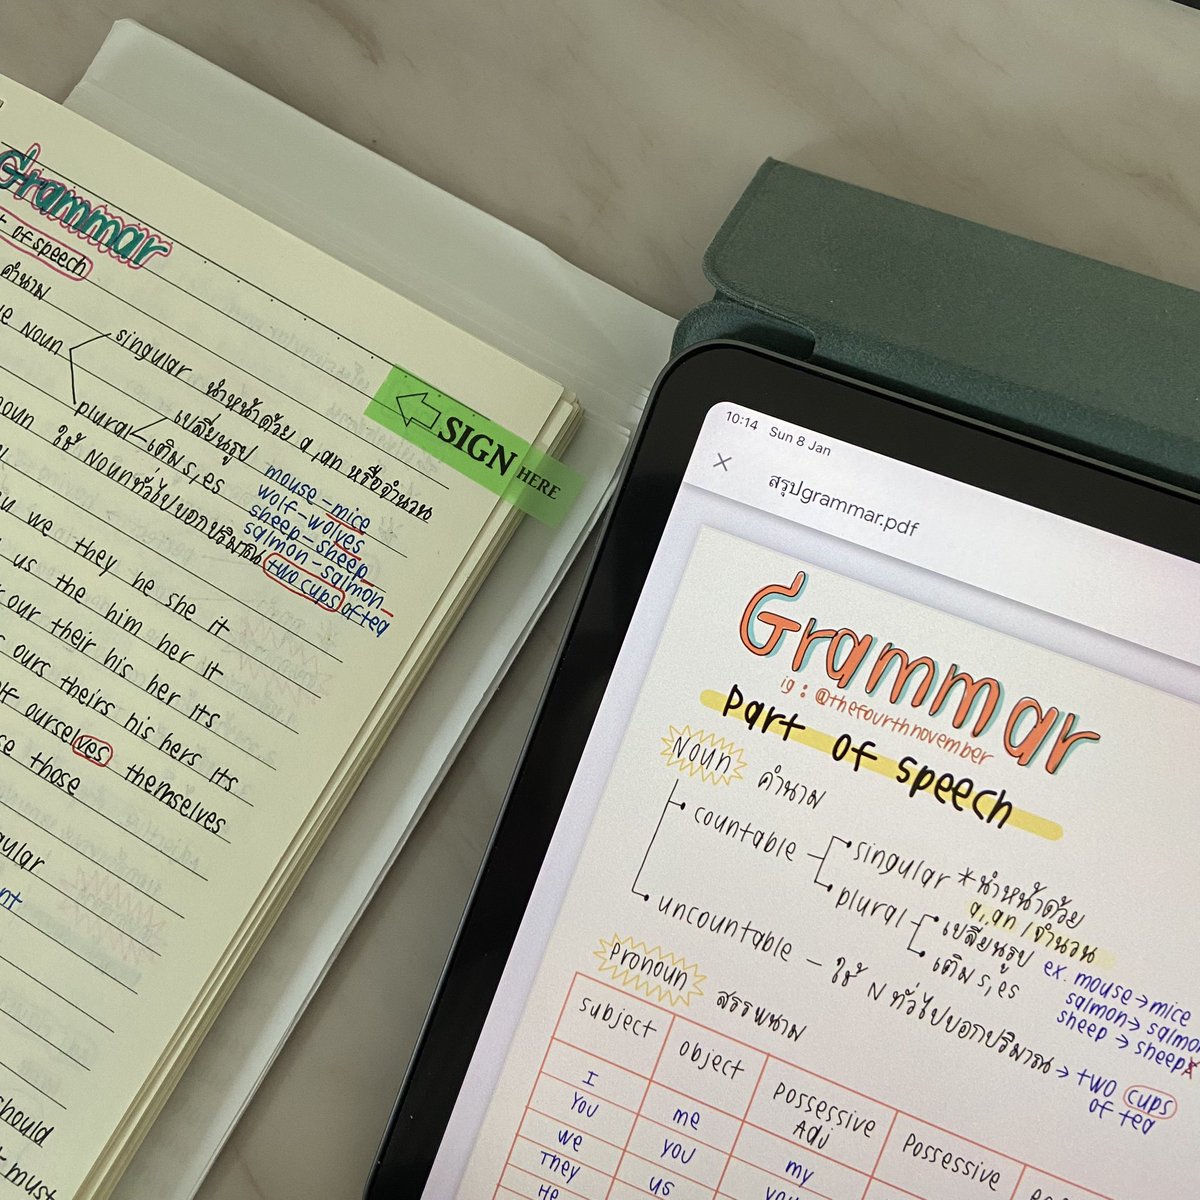 Grammar
of speech
คำนาม
Noun
singular นำหน้าด้วย a, an หรือจำนวน
plural
เปลี่ยนรูป
เติม s, es
mouse-mice
wolf-wolves
sheep-sheep
salmon-salmon
noun ใช้ Nounทั่วไปบอกปริมาณ two cups of tea
we they he she it
us the him her it
our their his her its
ours theirs his hers its
ourselves themselves
those
should
must
SIGN HERE
10:14 Sun 8 Jan
สรุปgrammar.pdf
Grammar
ig : @thefourthnovember
part of speech
Noun คำนาม
countable
singular *นำหน้าด้วย
a, an / จำนวน
plural
เปลี่ยนรูป
เติม s, es
ex. mouse→mice
salmon→salmon
sheep→sheep
uncountable – ใช้ N ทั่วไปบอกปริมาณ → two cups
of tea
Pronoun สรรพนาม
subject object Possessive Adj Possessive
I me my
You you
We us
They
He